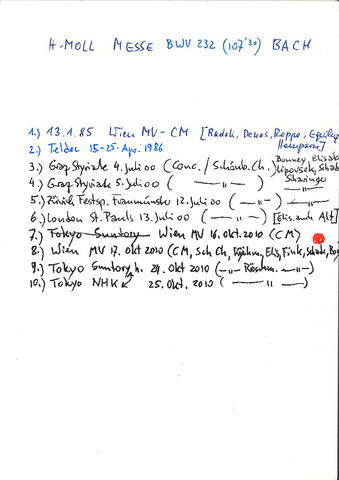 H-MOLL MESSE BWV 232 (107'30) BACH
1.) 13.1.85 Wien MV-CM [Radok, Denes, Rappe, Equiluz
Hampson]
2.) Teldec 15-25. Apr. 1986
Bonney, Elisab
3.) Graz Styriarte 4. Juli 00 (Conc./Schönb.Ch.) Lipovsek, Schade
Scharinger
4.) Graz Styriarte 5. Juli 00 ( —"— ) —"—
5.) Zürich Festsp. Fraumünster 12. Juli 00 ( —"— ) —"—
6.) London St. Pauls 13. Juli 00 ( —"— ) [Elis. anst. Alt]
7.) Tokyo Suntory Wien MV 16. Okt. 2010 (CM)
8.) Wien MV 17. Okt 2010 (CM, Sch Ch, Röhm, Elis, Fink, Schade, Boe
9.) Tokyo Suntory h. 24. Okt 2010 (—"— Röschm. —"—)
10.) Tokyo NHK 25. Okt. 2010 ( —"— )